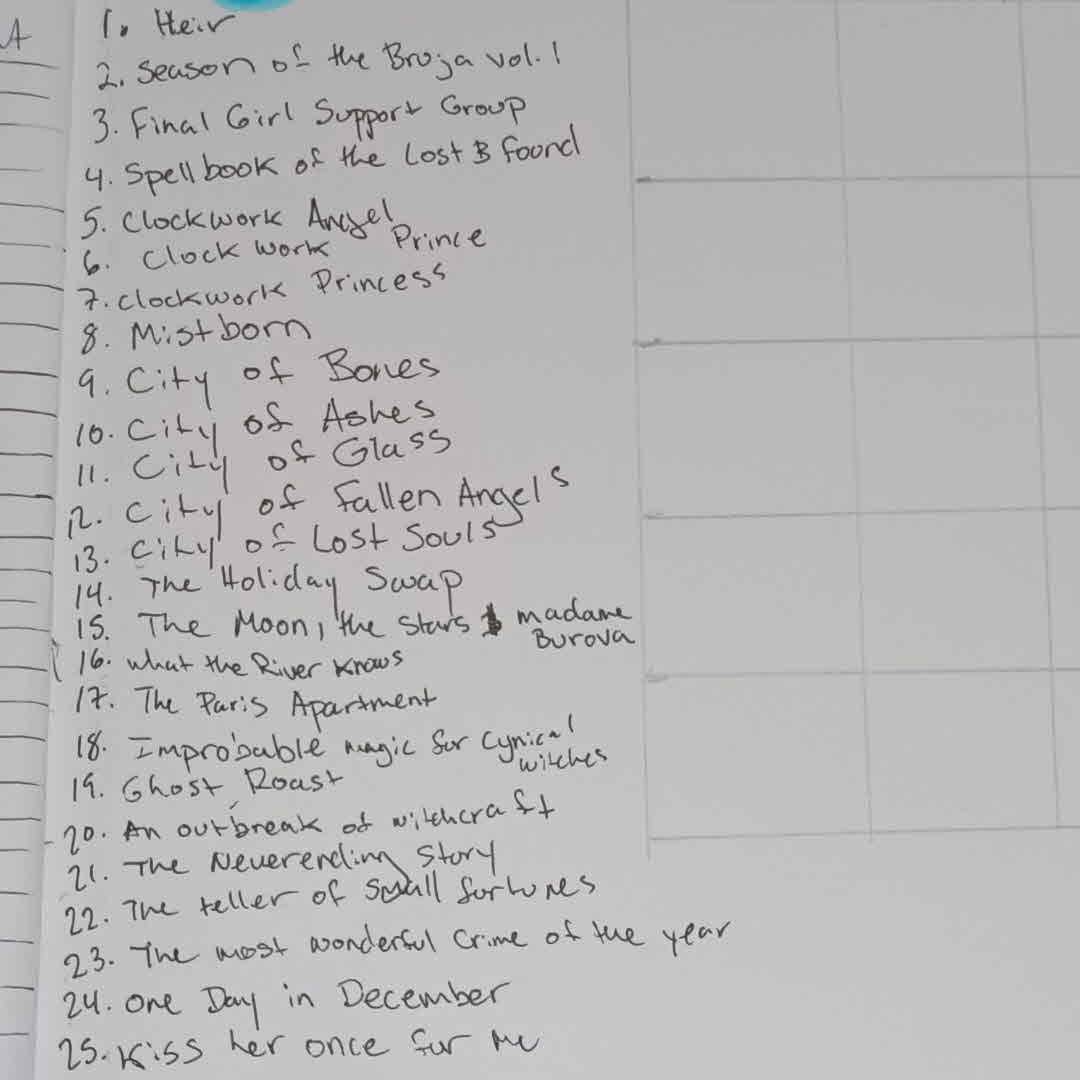 A
1. Heir
2. Season of the Bruja vol. 1
3. Final Girl Support Group
4. Spellbook of the Lost & found
5. Clockwork Angel
6. Clock work Prince
7. Clockwork Princess
8. Mistborn
9. City of Bones
10. City of Ashes
11. City of Glass
12. City of Fallen Angels
13. City of Lost Souls
14. The Holiday Swap
15. The Moon, the Stars & madame
Burova
16. what the River knows
17. The Paris Apartment
18. Improbable magic for Cynical
witches
19. Ghost Roast
20. An outbreak of witchcraft
21. The Neverending Story
22. The teller of Small fortunes
23. The most wonderful Crime of the year
24. One Day in December
25. Kiss her once for me